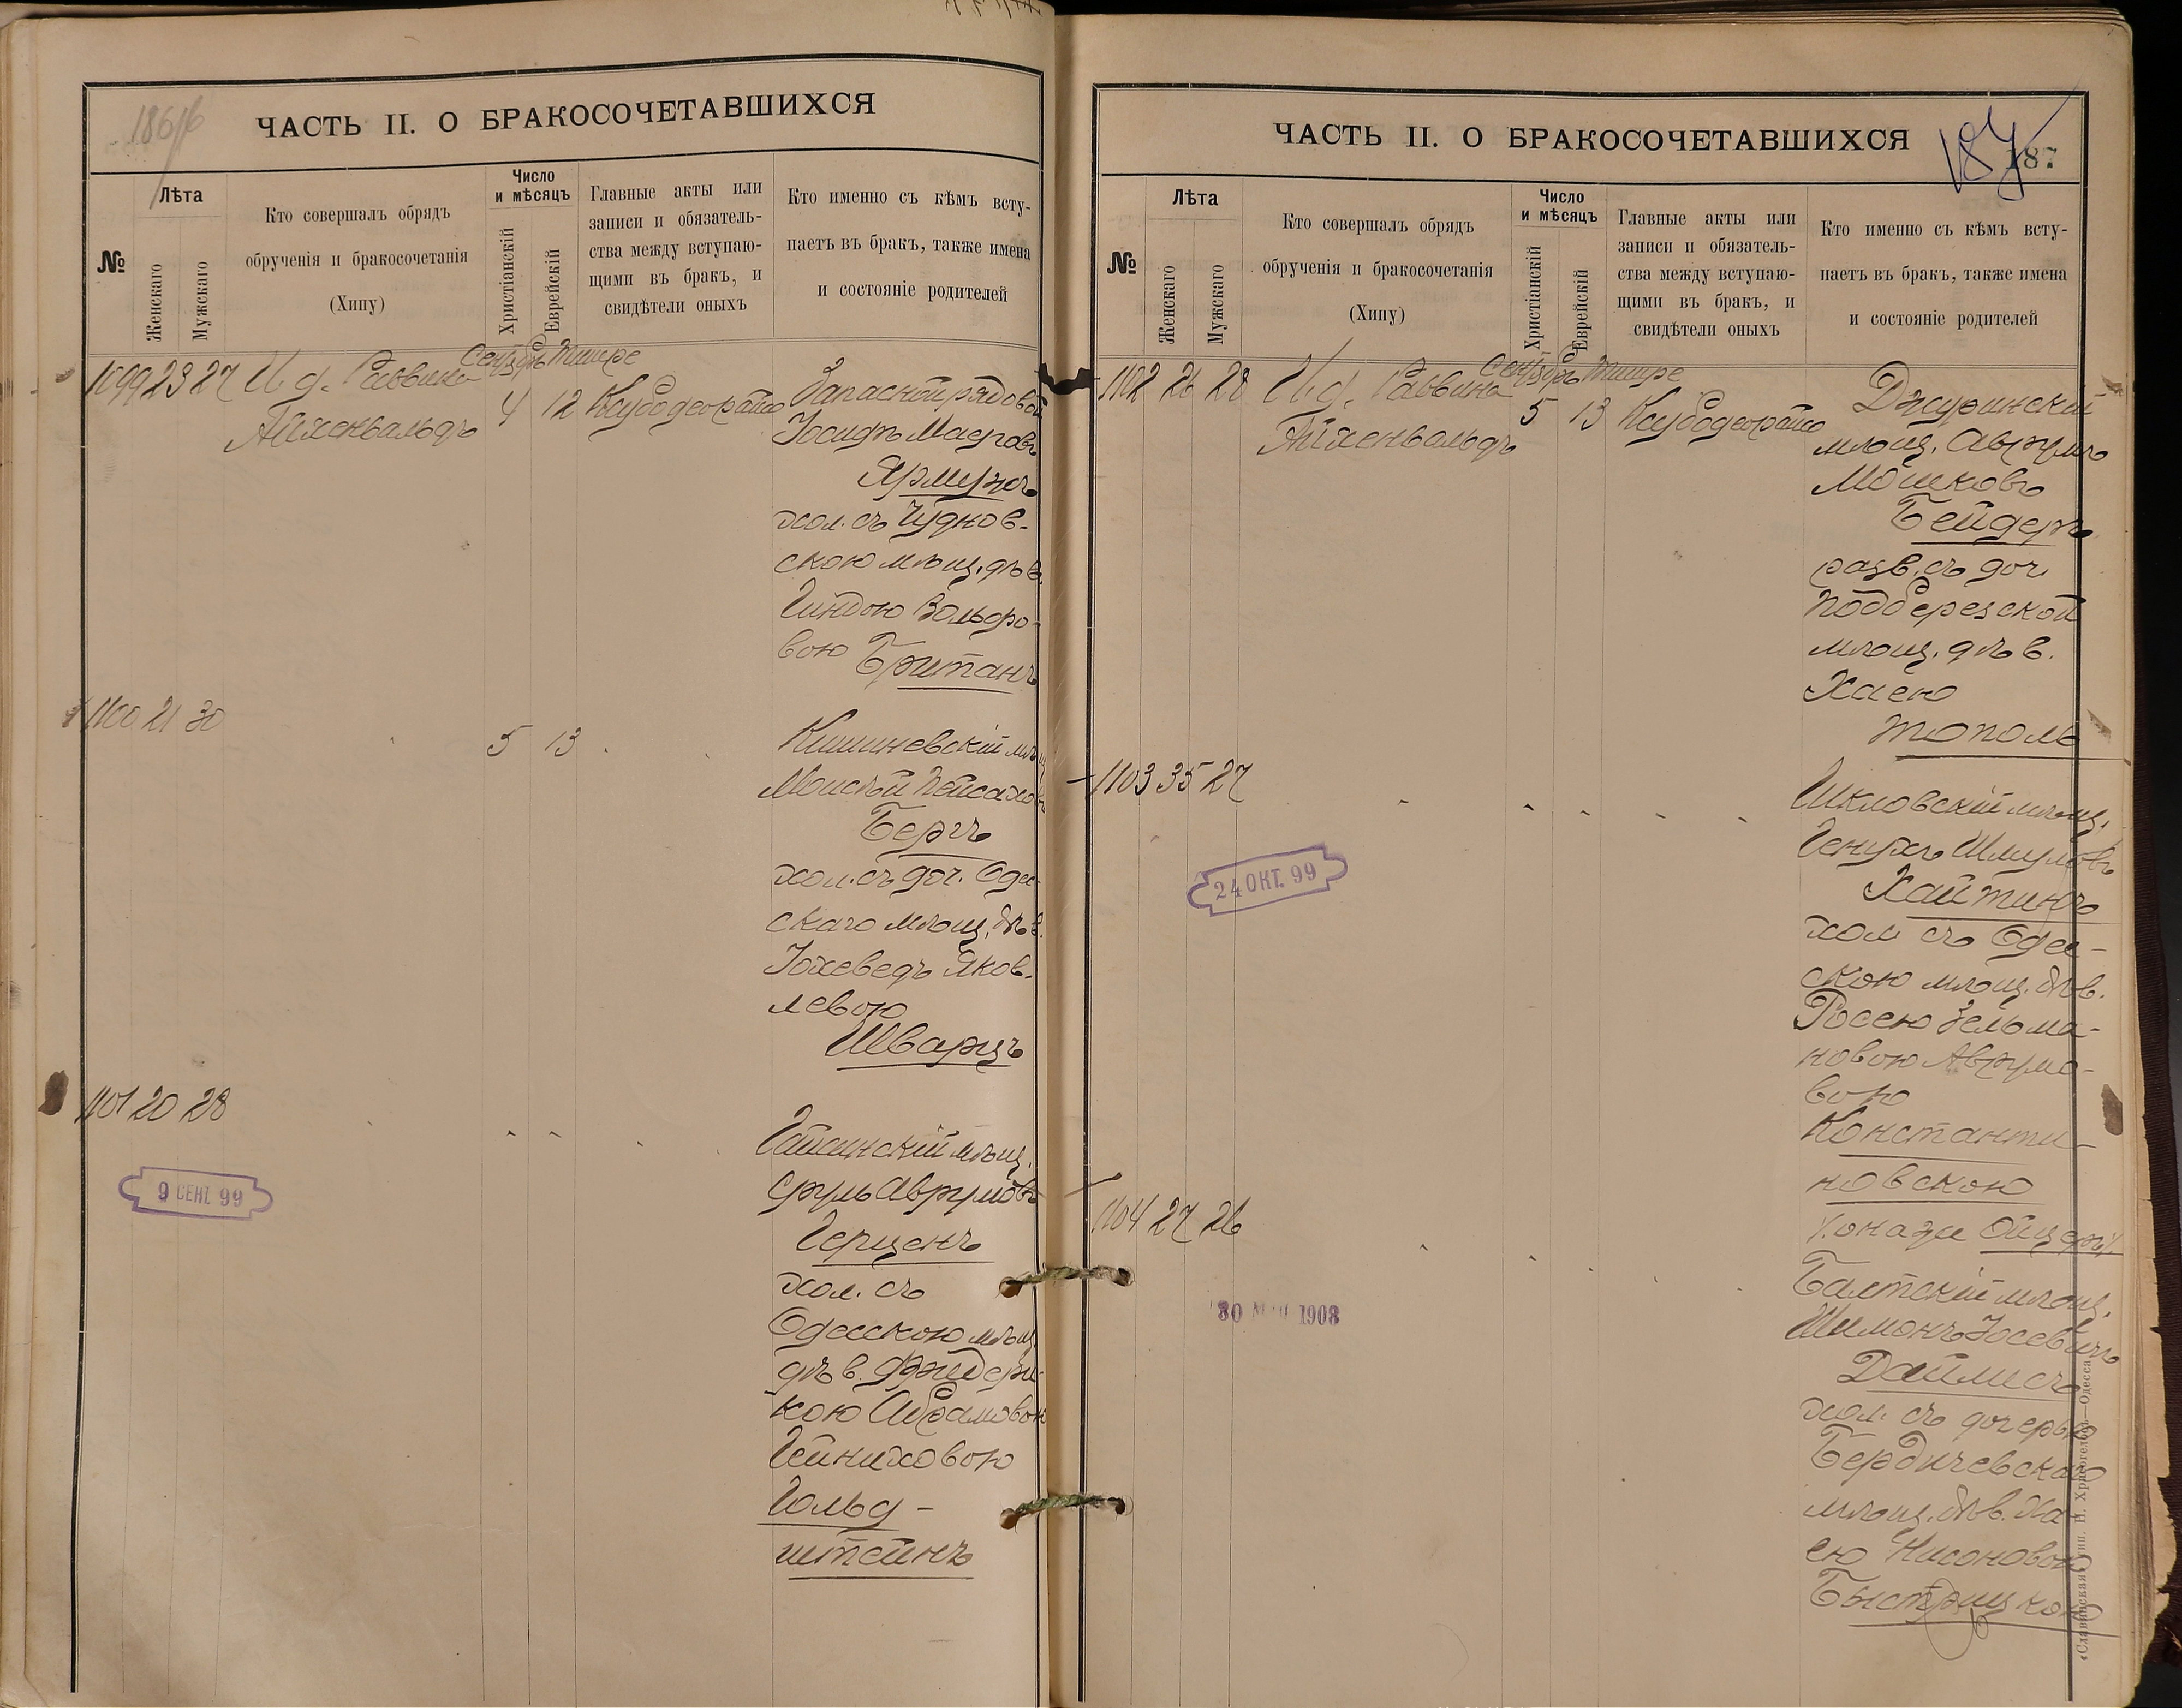 186 об
ЧАСТЬ II. О БРАКОСОЧЕТАВШИХСЯ
№
Лѣта
Женскаго
Мужскаго
Кто совершалъ обрядъ
обрученія и бракосочетанія
(Хипу)
Число
и мѣсяцъ
Христіанскій
Еврейскій
Главные акты или
записи и обязатель-
ства между вступаю-
щими въ бракъ, и
свидѣтели оныхъ
Кто именно съ кѣмъ всту-
паетъ въ бракъ, также имена
и состояніе родителей
1099 23 27 И. д. Раввина
Айхенвальдъ
Сентябрь Тишре
4 12
Запасной рядовой
Іосифъ
Ярмурокъ
хол. съ Чуднов-
скою мѣщ. дѣв.
Гиндою Вольфо-
вою Бритакъ
1100 21 30
5 13
Кишиневскій мѣщ
Моисѣй Пейсахов
Бергъ
хол. съ доч. Одес-
скаго мѣщ. дѣв.
Іохеведъ Яков-
левою
Шварцъ
1101 20 28
Гайсинскій мѣщ.
Сруль Аврумовъ
Герценъ
хол. съ
Одесскою мѣщ
дѣв. Фридери-
кою Абрамовою
Гейниховою
Гольд-
штейнъ
9 СЕНТ. 99
187
187
ЧАСТЬ II. О БРАКОСОЧЕТАВШИХСЯ
№
Лѣта
Женскаго
Мужскаго
Кто совершалъ обрядъ
обрученія и бракосочетанія
(Хипу)
Число
и мѣсяцъ
Христіанскій
Еврейскій
Главные акты или
записи и обязатель-
ства между вступаю-
щими въ бракъ, и
свидѣтели оныхъ
Кто именно съ кѣмъ всту-
паетъ въ бракъ, также имена
и состояніе родителей
1102 26 28 И. д. Раввина
Айхенвальдъ
Сентябрь Тишре
5 13
Джуринскій
мѣщ. Аврумъ
Мошковъ
Бейдеръ
разв. съ доч.
Подберезской
мѣщ. дѣв.
Хаею
Тополь
1103 35 27
Шкловскій мѣщ.
Генухъ Шмулов
Хайтинъ
хол съ Одес-
скою мѣщ. дѣв.
Росею Зельма-
новою Аврумо-
вою
Константи-
новскою
(она же Ойцеръ)
24 ОКТ. 99
1104 27 26
Балтскій мѣщ.
Шимонъ Іосевичъ
Даймисъ
хол. съ дочерью
Бердичевскаго
мѣщ. дѣв. Ха-
ею Нисоновою
Быстрицкою
30 1908
«Славянская» тип. Н. Хрисогелосъ—Одесса.